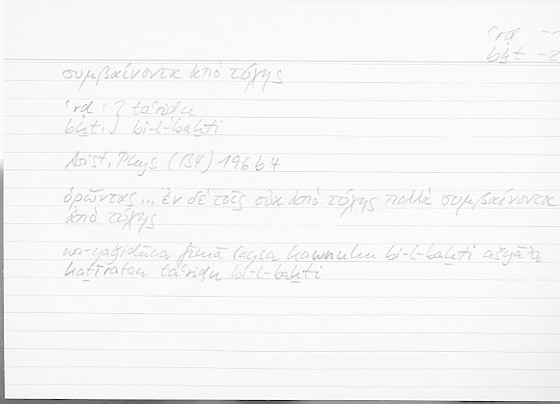 ʿrḍ –1
bḫt –2
συμβαίνοντα ἀπὸ τύχης
ʿrḍ : } taʿriḍu
bḫt : } bi-l-baḫti
Arist. Phys. (B4) 196b4
ὁρῶντας ... ἐν δὲ τοῖς οὐκ ἀπὸ τύχης πολλὰ συμβαίνοντα
ἀπὸ τύχης
wa-yaǧidūna fīmā laysa kawnuhu bi-l-baḫti ašyāʾa
kaṯīratan taʿriḍu bi-l-baḫti